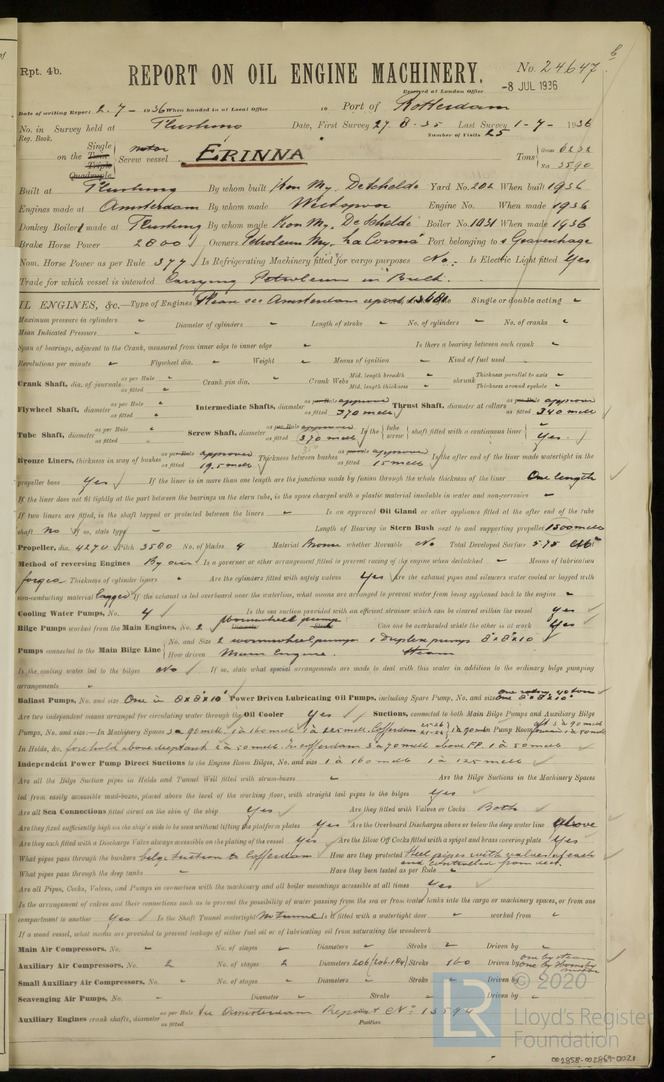 Rpt. 4b.
REPORT ON OIL ENGINE MACHINERY.
No. 24647
Received at London Office
-8 JUL 1936
Date of writing Report 2-7-1936 When handed in at Local Office 19 Port of Rotterdam
No. in Survey held at Flushing Date, First Survey 27.8.35 Last Survey 1-7-1936
Reg. Book. Number of Visits 25
on the Single Twin Triple Quadruple Screw vessel motor ERINNA Tons Gross 6232 Net 3590
Built at Flushing By whom built Kon My. De Schelde Yard No. 202 When built 1936
Engines made at Amsterdam By whom made Werkspoor Engine No. When made 1936
Donkey Boiler made at Flushing By whom made Kon My. De Schelde Boiler No. 1031 When made 1936
Brake Horse Power 2800 Owners Petroleum My. La Corona Port belonging to s Gravenhage
Nom. Horse Power as per Rule 377 Is Refrigerating Machinery fitted for cargo purposes No. Is Electric Light fitted Yes
Trade for which vessel is intended Carrying Petroleum in Bulk.
IL ENGINES, &c.—Type of Engines Please see Amsterdam report Single or double acting
Maximum pressure in cylinders Diameter of cylinders Length of stroke No. of cylinders No. of cranks
Mean Indicated Pressure
Span of bearings, adjacent to the Crank, measured from inner edge to inner edge Is there a bearing between each crank
Revolutions per minute Flywheel dia. Weight Means of ignition Kind of fuel used
Crank Shaft, dia. of journals as per Rule as fitted Crank pin dia. Crank Webs Mid. length breadth Mid. length thickness shrunk Thickness parallel to axis Thickness around eyehole
Flywheel Shaft, diameter as per Rule as fitted Intermediate Shafts, diameter as per Rule approved as fitted 370 mm Thrust Shaft, diameter at collars as per Rule approved as fitted 340 mm
Tube Shaft, diameter as per Rule as fitted Screw Shaft, diameter as per Rule approved as fitted 370 mm Is the tube screw shaft fitted with a continuous liner Yes.
Bronze Liners, thickness in way of bushes as per Rule approved as fitted 19.5 mm Thickness between bushes as per Rule approved as fitted 15 mm Is the after end of the liner made watertight in the
propeller boss Yes If the liner is in more than one length are the junctions made by fusion through the whole thickness of the liner One length
If the liner does not fit tightly at the part between the bearings in the stern tube, is the space charged with a plastic material insoluble in water and non-corrosive
If two liners are fitted, is the shaft lapped or protected between the liners Is an approved Oil Gland or other appliance fitted at the after end of the tube
shaft No If so, state type Length of Bearing in Stern Bush next to and supporting propeller 1500 mm
Propeller, dia. 4270 Pitch 3500 No. of blades 4 Material Bronze whether Moveable No Total Developed Surface 5.75
Method of reversing Engines By air Is a governor or other arrangement fitted to prevent racing of the engine when declutched Means of lubrication
forced Thickness of cylinder liners Are the cylinders fitted with safety valves Yes Are the exhaust pipes and silencers water cooled or lagged with
non-conducting material Lagged If the exhaust is led overboard near the waterline, what means are arranged to prevent water from being syphoned back to the engine
Cooling Water Pumps, No. 4 Is the sea suction provided with an efficient strainer which can be cleared within the vessel yes
Bilge Pumps worked from the Main Engines, No. 2 Wormwheel pump Diameter Stroke Can one be overhauled while the other is at work Yes
Pumps connected to the Main Bilge Line No. and Size 2 wormwheel pumps 1 Duplex pump 8"x8"x10
How driven Main Engine. Steam
Is the cooling water led to the bilges No If so, state what special arrangements are made to deal with this water in addition to the ordinary bilge pumping
arrangements
Ballast Pumps, No. and size One is 8x8x10 Power Driven Lubricating Oil Pumps, including Spare Pump, No. and size
Are two independent means arranged for circulating water through the Oil Cooler Yes Suctions, connected to both Main Bilge Pumps and Auxiliary Bilge
Pumps, No. and size:—In Machinery Spaces 3 a 90 mm 1 a 160 mm 1 a 125 mm Cofferdam 1 a 90 mm Pump Room
In Holds, &c. forehold above deeptank 2 a 50 mm In cofferdam 3 a 70 mm above F.P. 1 a 50 mm
Independent Power Pump Direct Suctions to the Engine Room Bilges, No. and size 1 a 160 mm 1 a 125 mm
Are all the Bilge Suction pipes in Holds and Tunnel Well fitted with strum-boxes Are the Bilge Suctions in the Machinery Spaces
led from easily accessible mud-boxes, placed above the level of the working floor, with straight tail pipes to the bilges Yes
Are all Sea Connections fitted direct on the skin of the ship Yes Are they fitted with Valves or Cocks Both
Are they fixed sufficiently high on the ship's side to be seen without lifting the platform plates Yes Are the Overboard Discharges above or below the deep water line Above
Are they each fitted with a Discharge Valve always accessible on the plating of the vessel Yes Are the Blow Off Cocks fitted with a spigot and brass covering plate Yes
What pipes pass through the bunkers bilge suction to Cofferdam How are they protected Steel pipes with valves of each end controlled from deck.
What pipes pass through the deep tanks Have they been tested as per Rule
Are all Pipes, Cocks, Valves, and Pumps in connexion with the machinery and all boiler mountings accessible at all times Yes
Is the arrangement of valves and their connections such as to prevent the possibility of water passing from the sea or from water tanks into the cargo or machinery spaces, or from one
compartment to another Yes Is the Shaft Tunnel watertight No tunnel Is it fitted with a watertight door worked from
If a wood vessel, what means are provided to prevent leakage of either fuel oil or of lubricating oil from saturating the woodwork
Main Air Compressors, No. No. of stages Diameters Stroke Driven by
Auxiliary Air Compressors, No. 2 No. of stages 2 Diameters 206/(206-184) Stroke 160 Driven by one by steam
Small Auxiliary Air Compressors, No. No. of stages Diameters Stroke Driven by
Scavenging Air Pumps, No. Diameter Stroke Driven by
Auxiliary Engines crank shafts, diameter as per Rule as fitted See Amsterdam Report No 13594 Position
© 2020
LR
Lloyd's Register
Foundation
002858-002869-0021